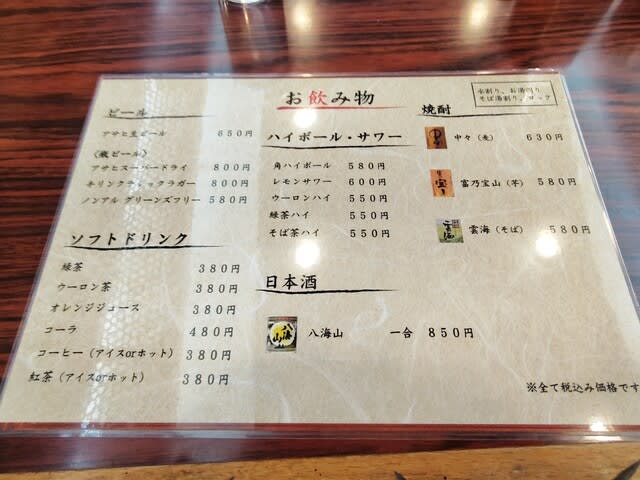 お飲み物
ビール
アサヒ生ビール 650円
〈瓶ビール〉
アサヒスーパードライ 800円
キリンクラシックラガー 800円
ノンアル グリーンズフリー 580円
ソフトドリンク
緑茶 380円
ウーロン茶 380円
オレンジジュース 380円
コーラ 480円
コーヒー（アイスorホット） 380円
紅茶（アイスorホット） 380円
ハイボール・サワー
角ハイボール 580円
レモンサワー 600円
ウーロンハイ 550円
緑茶ハイ 550円
そば茶ハイ 550円
日本酒
八海山
八海山 一合 850円
焼酎
水割り、お湯割り
そば湯割り、ロック
中々（麦） 630円
富乃宝山（芋） 580円
雲海（そば） 580円
※全て税込み価格です